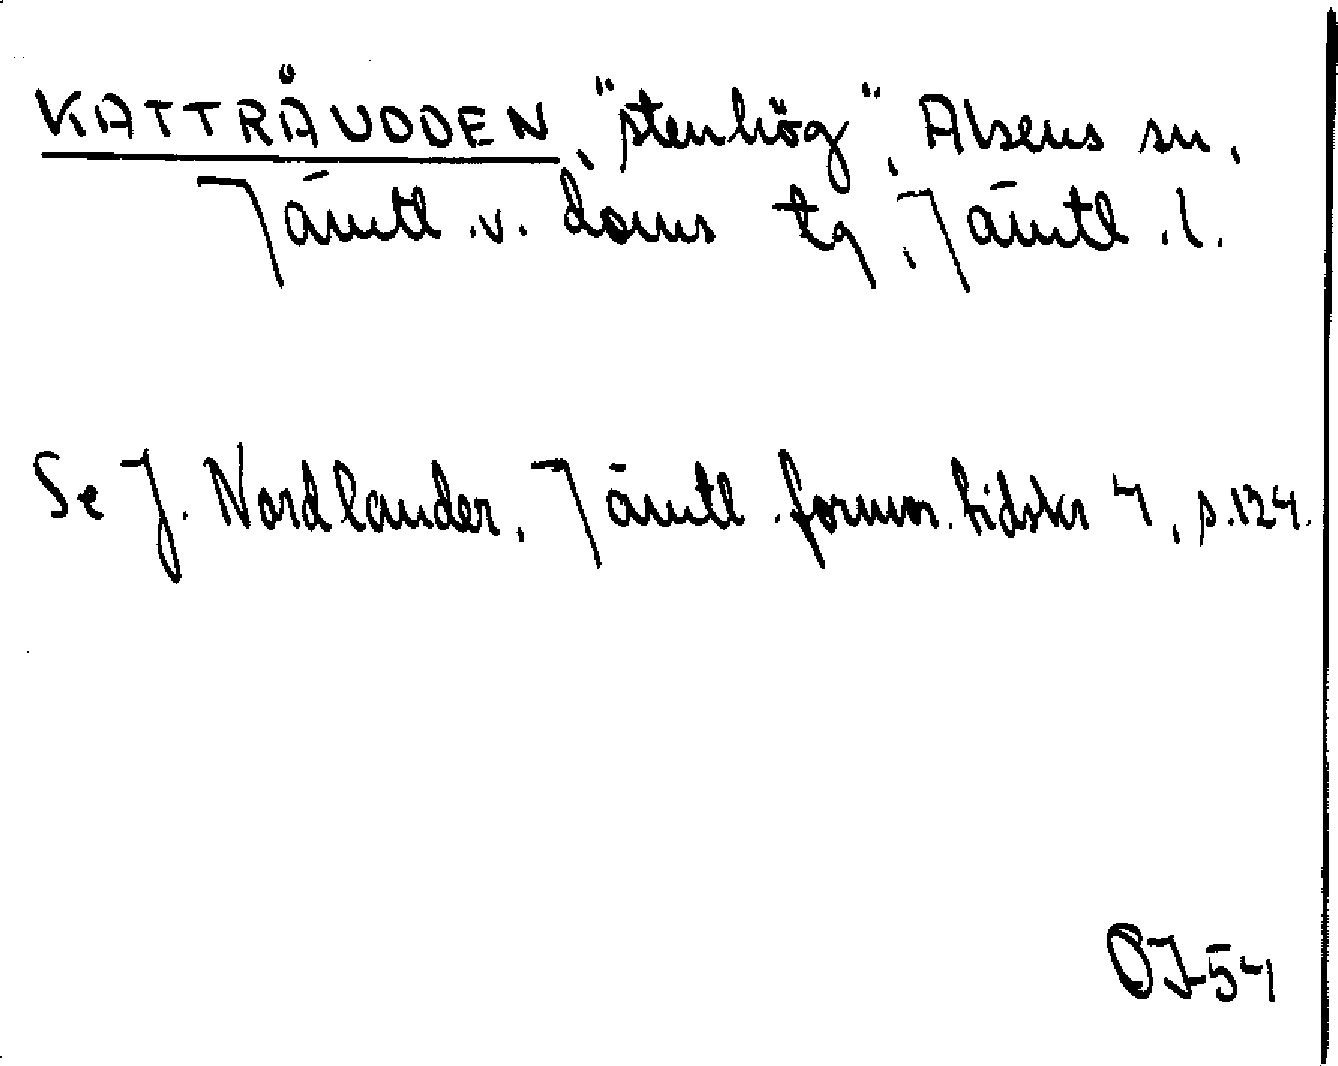 KATTRÅUDDEN, "stenhög", Alsens sn,
Jämtl. v. doms tg, Jämtl. l.
Se J. Nordlander, Jämtl. fornm. tidskr 4, s. 124.
OJ-54